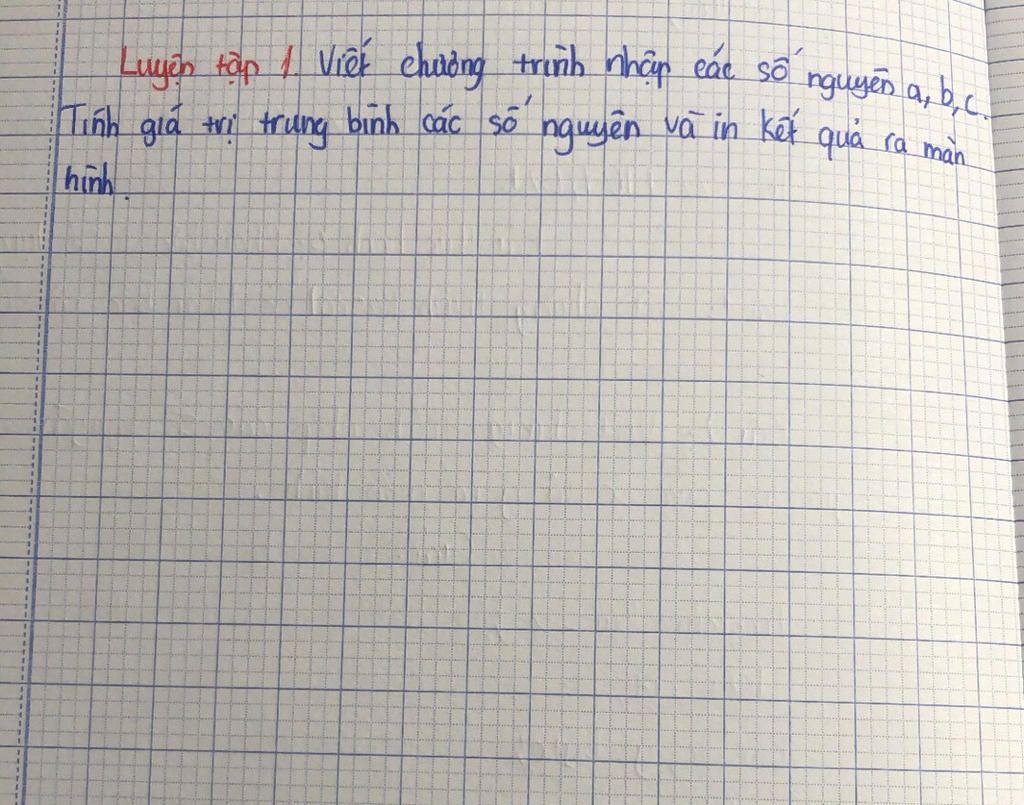 Luyện tập 1. Viết chương trình nhập các số nguyên a, b, c.
Tính giá trị trung bình các số nguyên và in kết quả ra màn
hình.